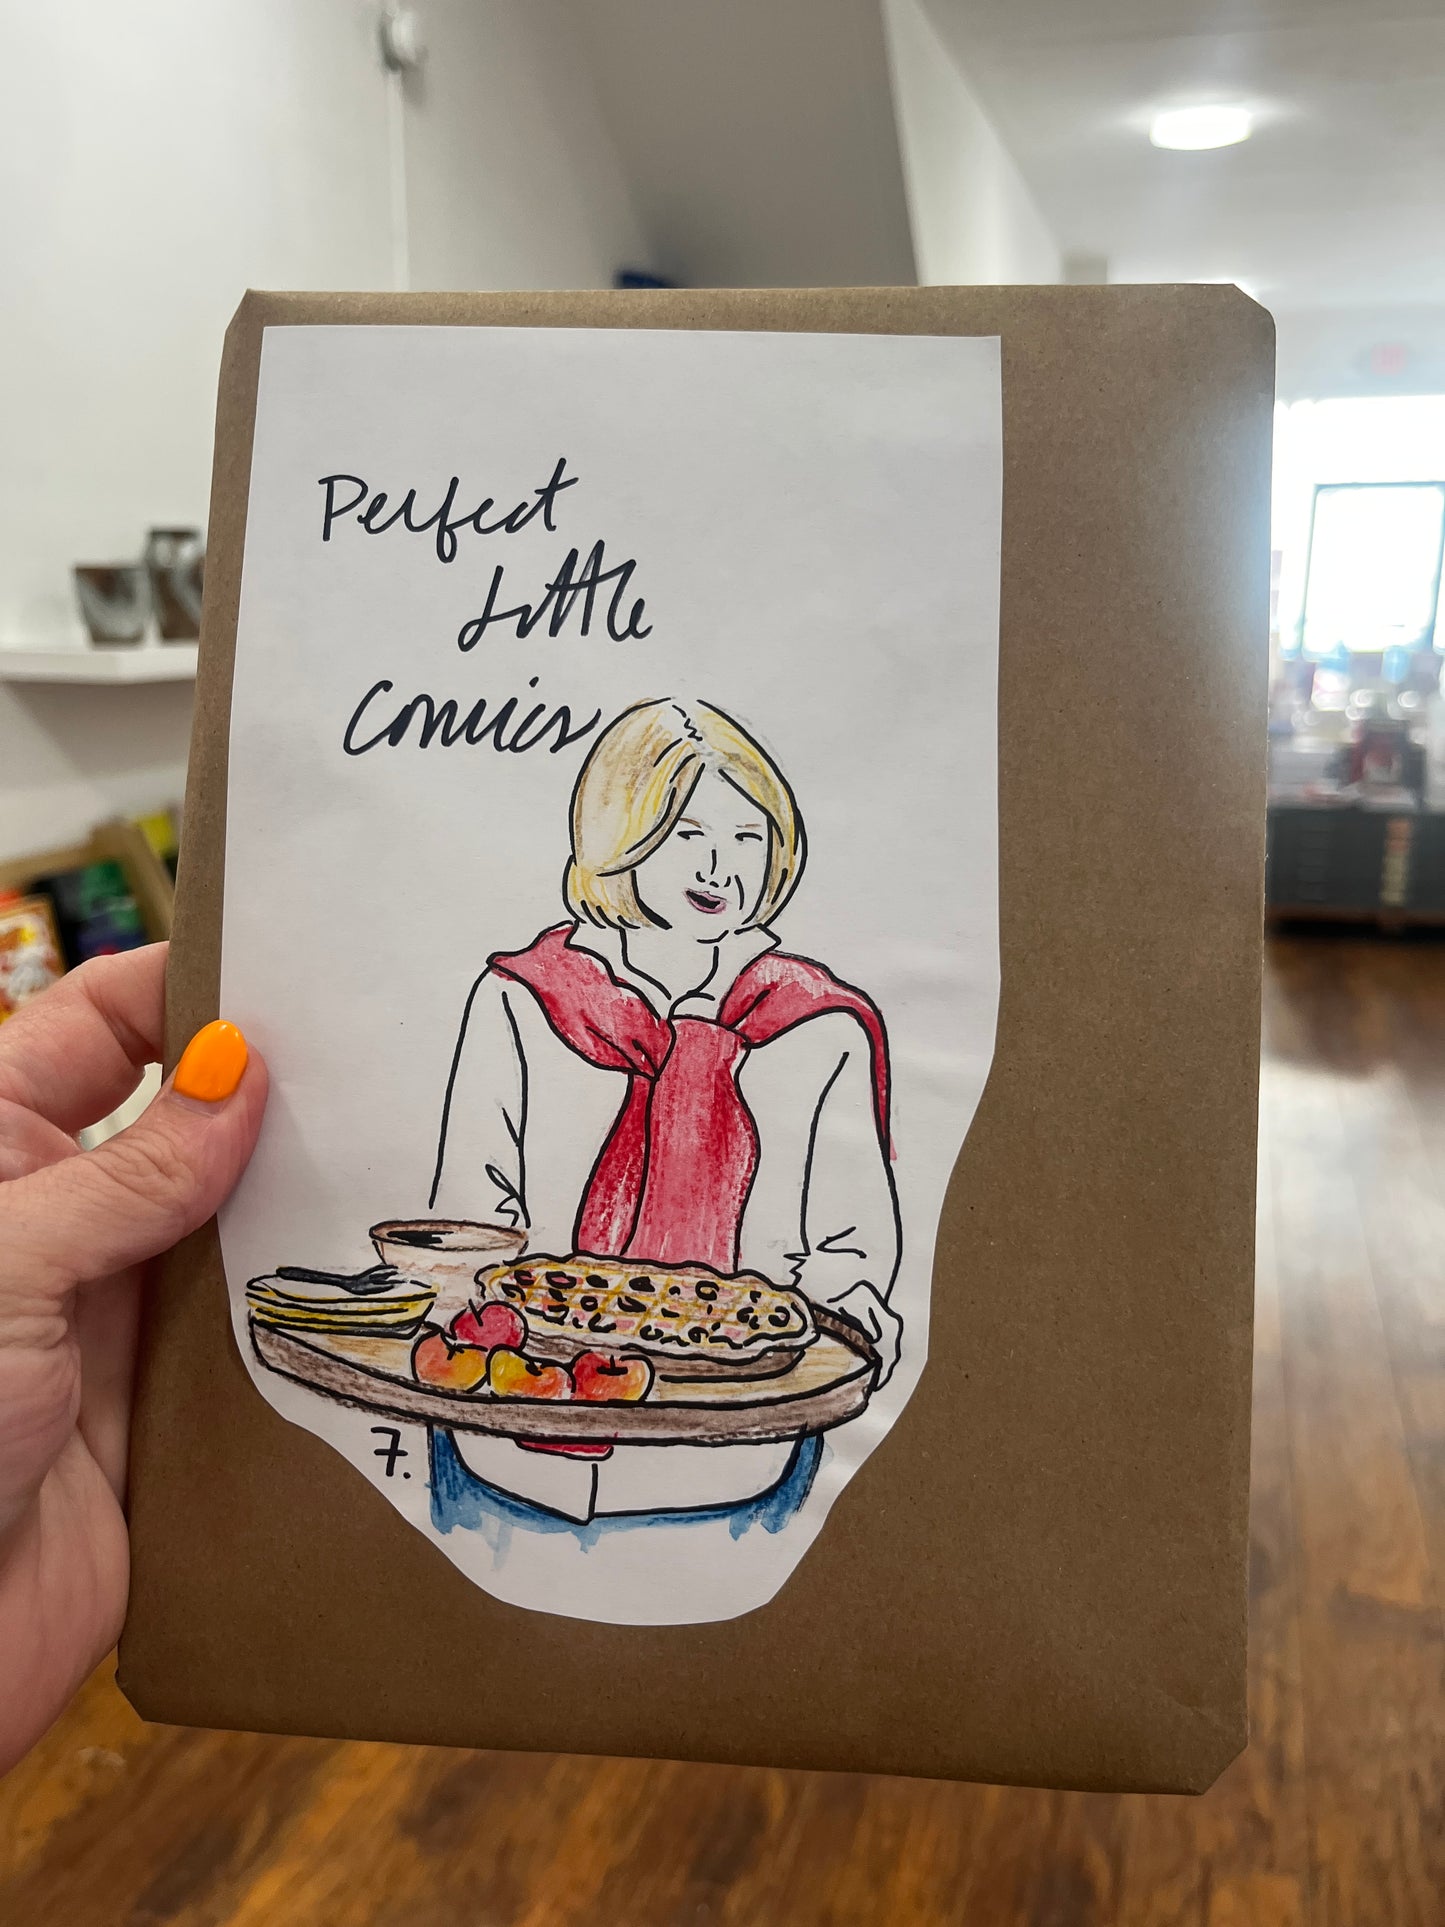 Perfect
Little
Comics
7.